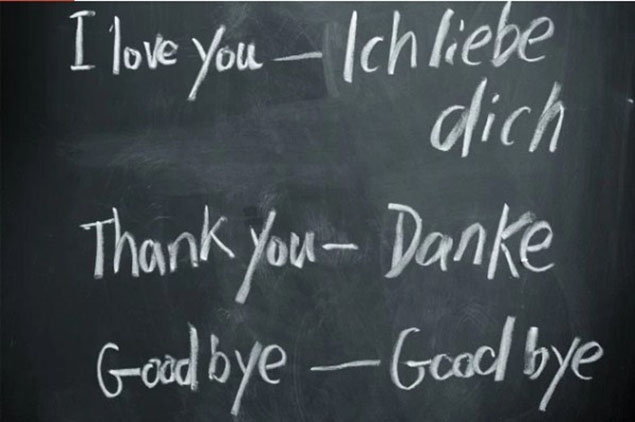 I love you — Ich liebe
dich
Thank you — Danke
Goodbye — Good bye